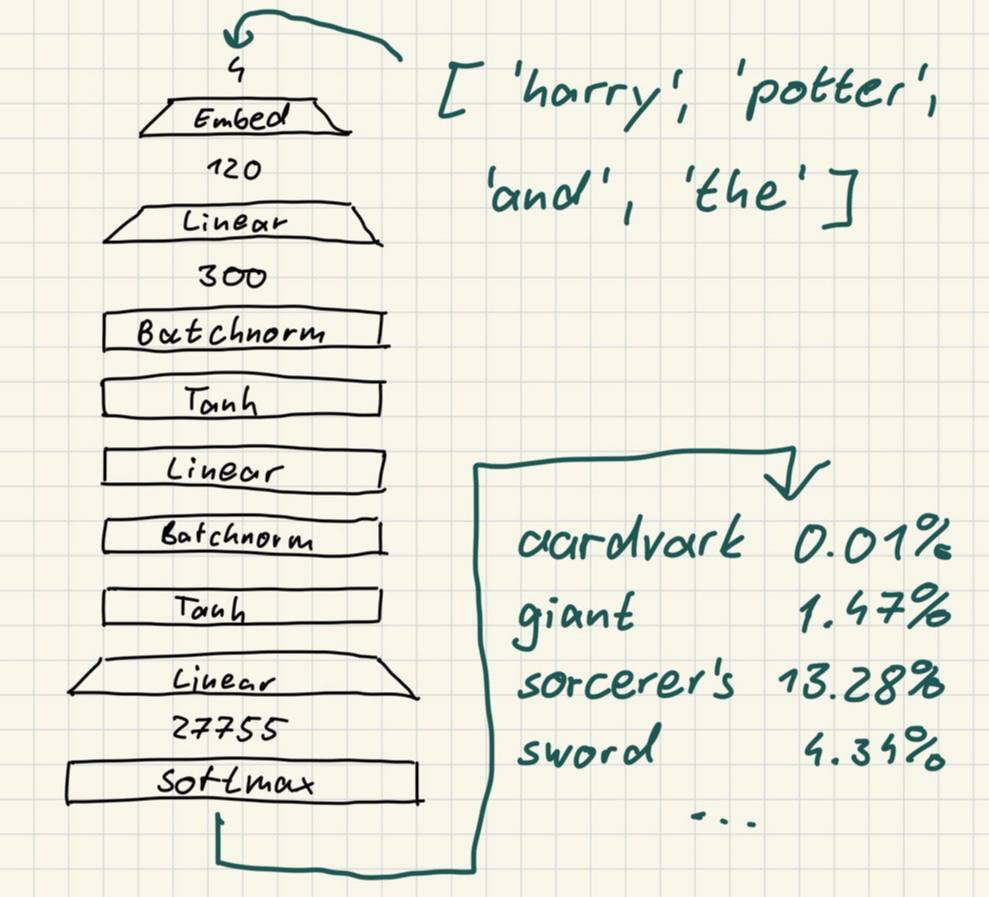 4
Embed
120
Linear
300
Batchnorm
Tanh
Linear
Batchnorm
Tanh
Linear
27755
Softmax
['harry', 'potter',
'and', 'the']
aardvark 0.01%
giant 1.47%
sorcerer's 13.28%
sword 4.34%
...